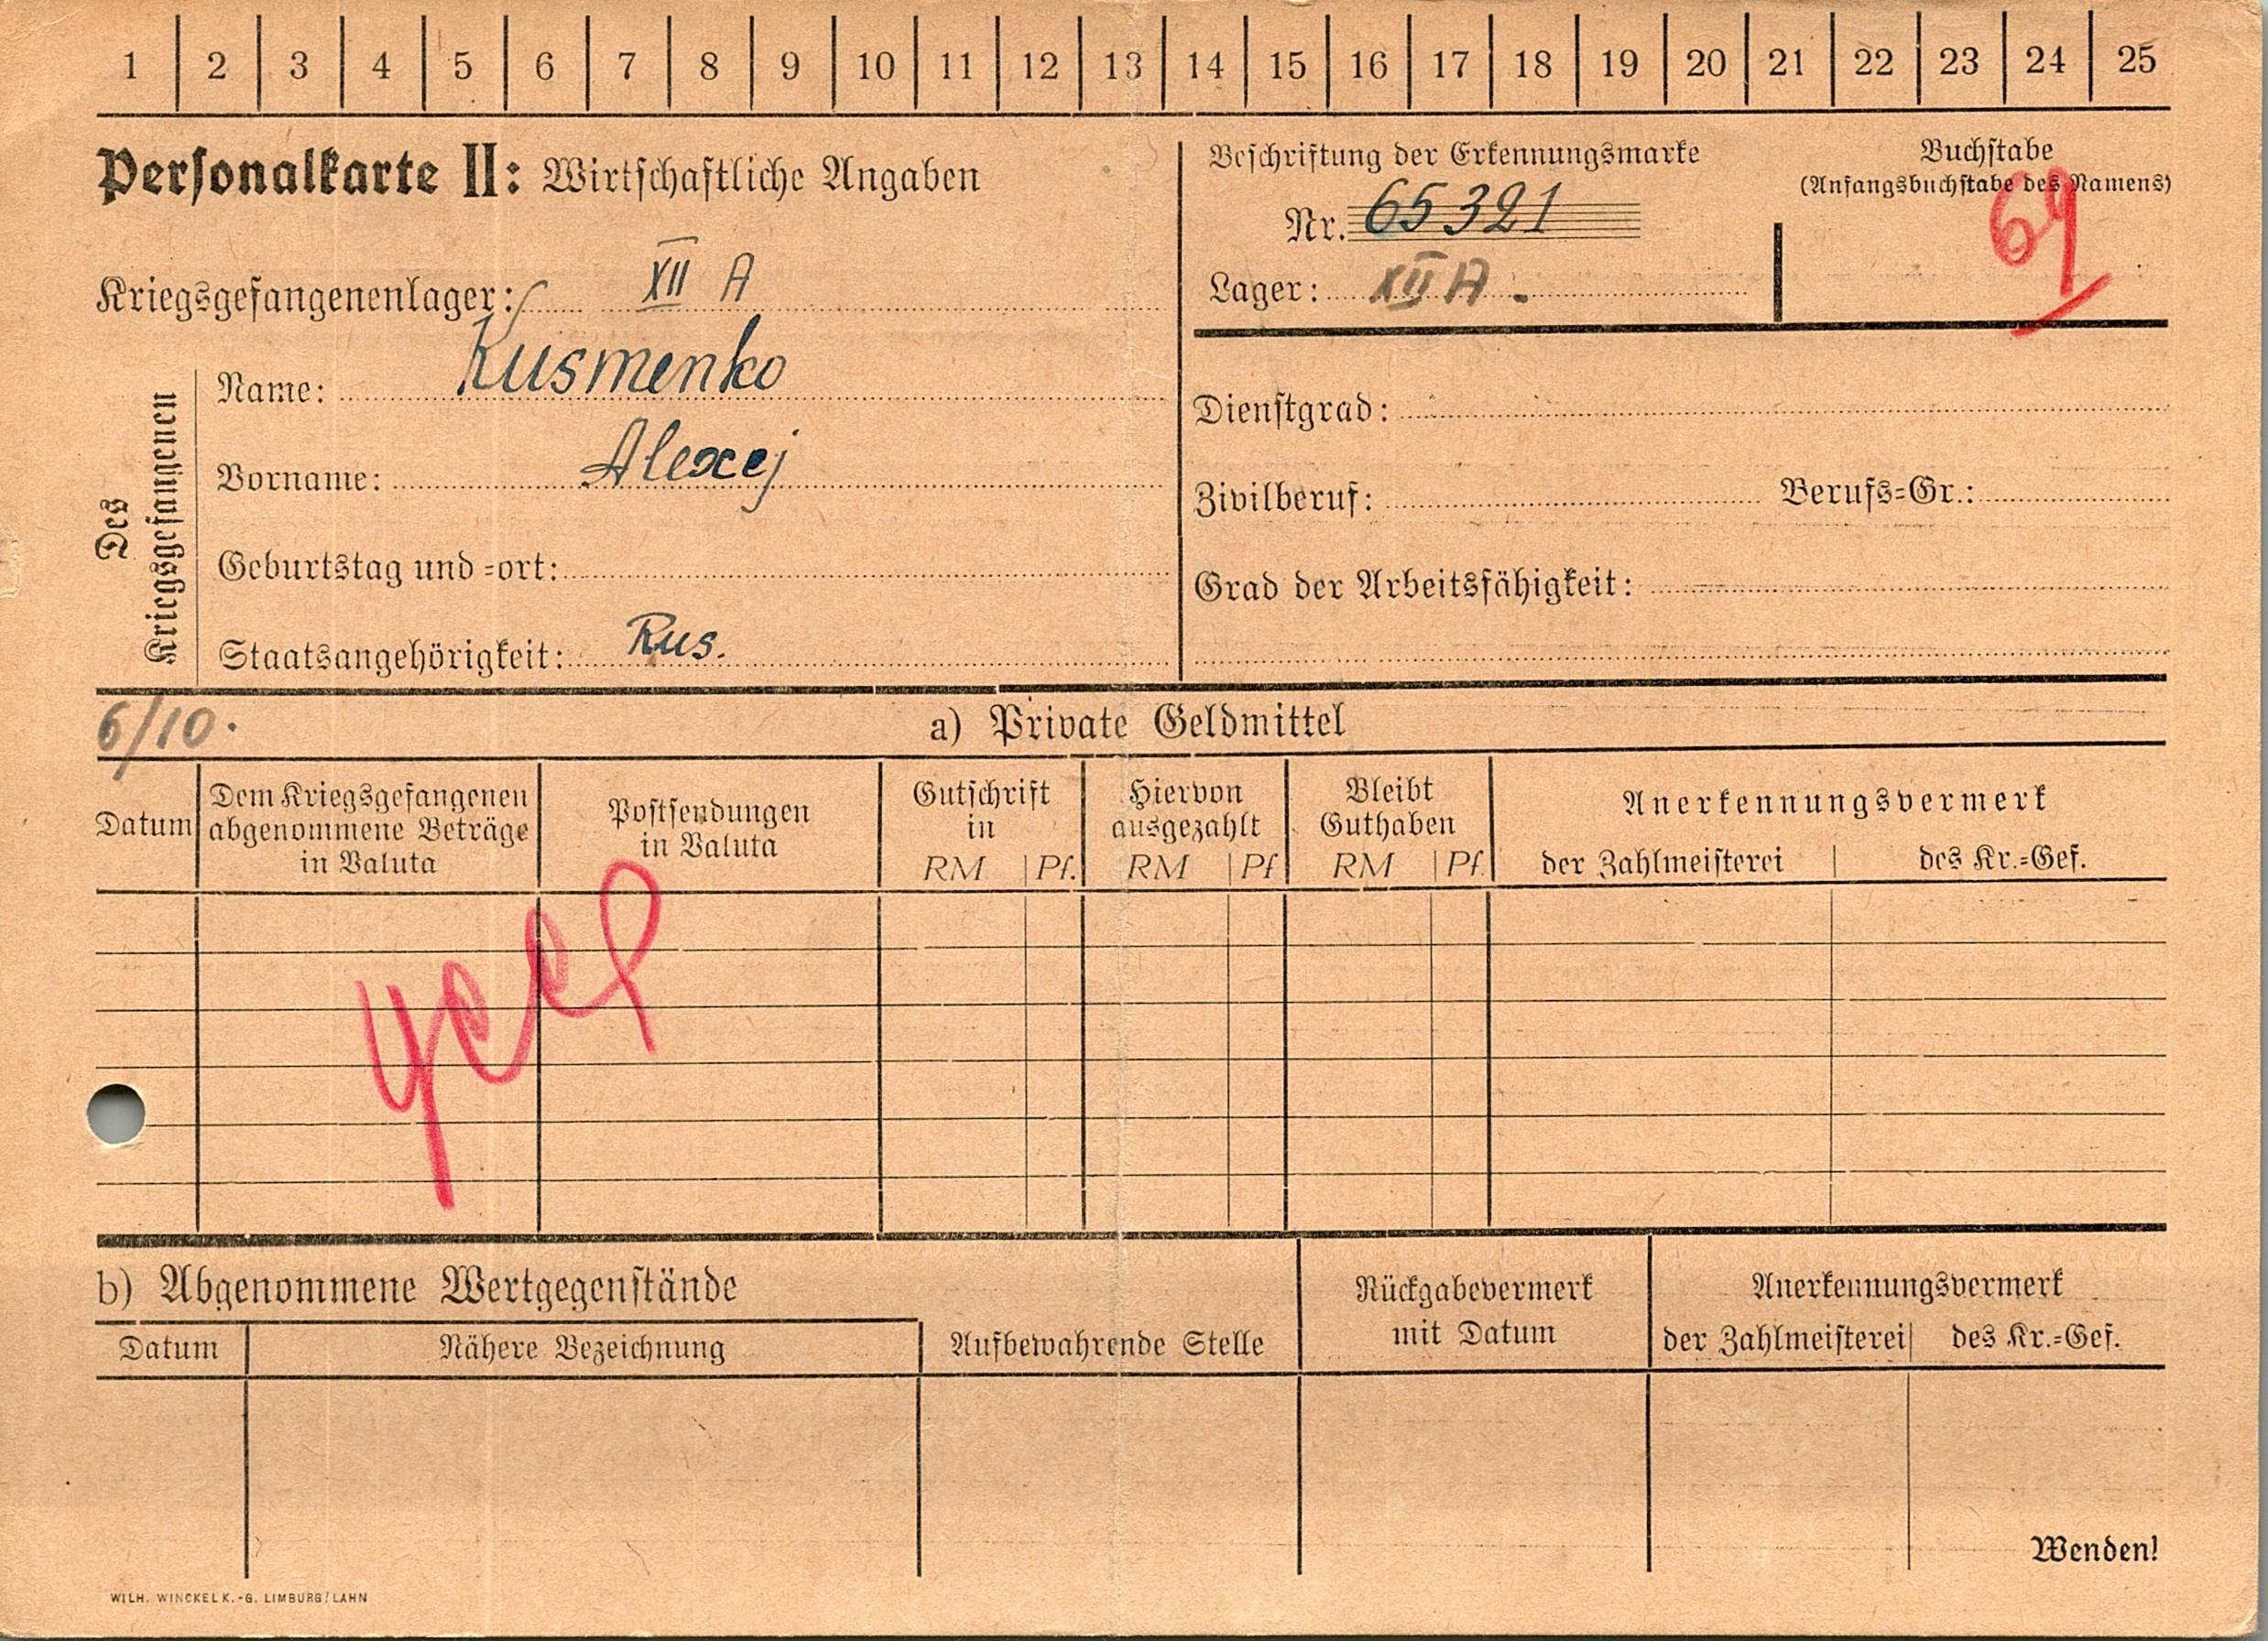 1 2 3 4 5 6 7 8 9 10 11 12 13 14 15 16 17 18 19 20 21 22 23 24 25
Personalkarte II: Wirtschaftliche Angaben
Beschriftung der Erkennungsmarke
Nr. 65321
Lager: XII A.
Buchstabe
(Anfangsbuchstabe des Namens)
69
Kriegsgefangenenlager: XII A
Des Kriegsgefangenen
Name: Kusmenko
Vorname: Alexej
Geburtstag und =ort:
Staatsangehörigkeit: Rus.
Dienstgrad:
Zivilberuf: Berufs=Gr.:
Grad der Arbeitsfähigkeit:
6/10.
a) Private Geldmittel
Datum
Dem Kriegsgefangenen
abgenommene Beträge
in Valuta
Postsendungen
in Valuta
Gutschrift
in
RM Pf.
Hiervon
ausgezahlt
RM Pf
Bleibt
Guthaben
RM Pf.
Anerkennungsvermerk
der Zahlmeisterei des Kr.=Gef.
b) Abgenommene Wertgegenstände
Datum Nähere Bezeichnung
Aufbewahrende Stelle
Rückgabevermerk
mit Datum
Anerkennungsvermerk
der Zahlmeisterei des Kr.=Gef.
Wenden!
WILH. WINCKEL K.-G. LIMBURG/LAHN